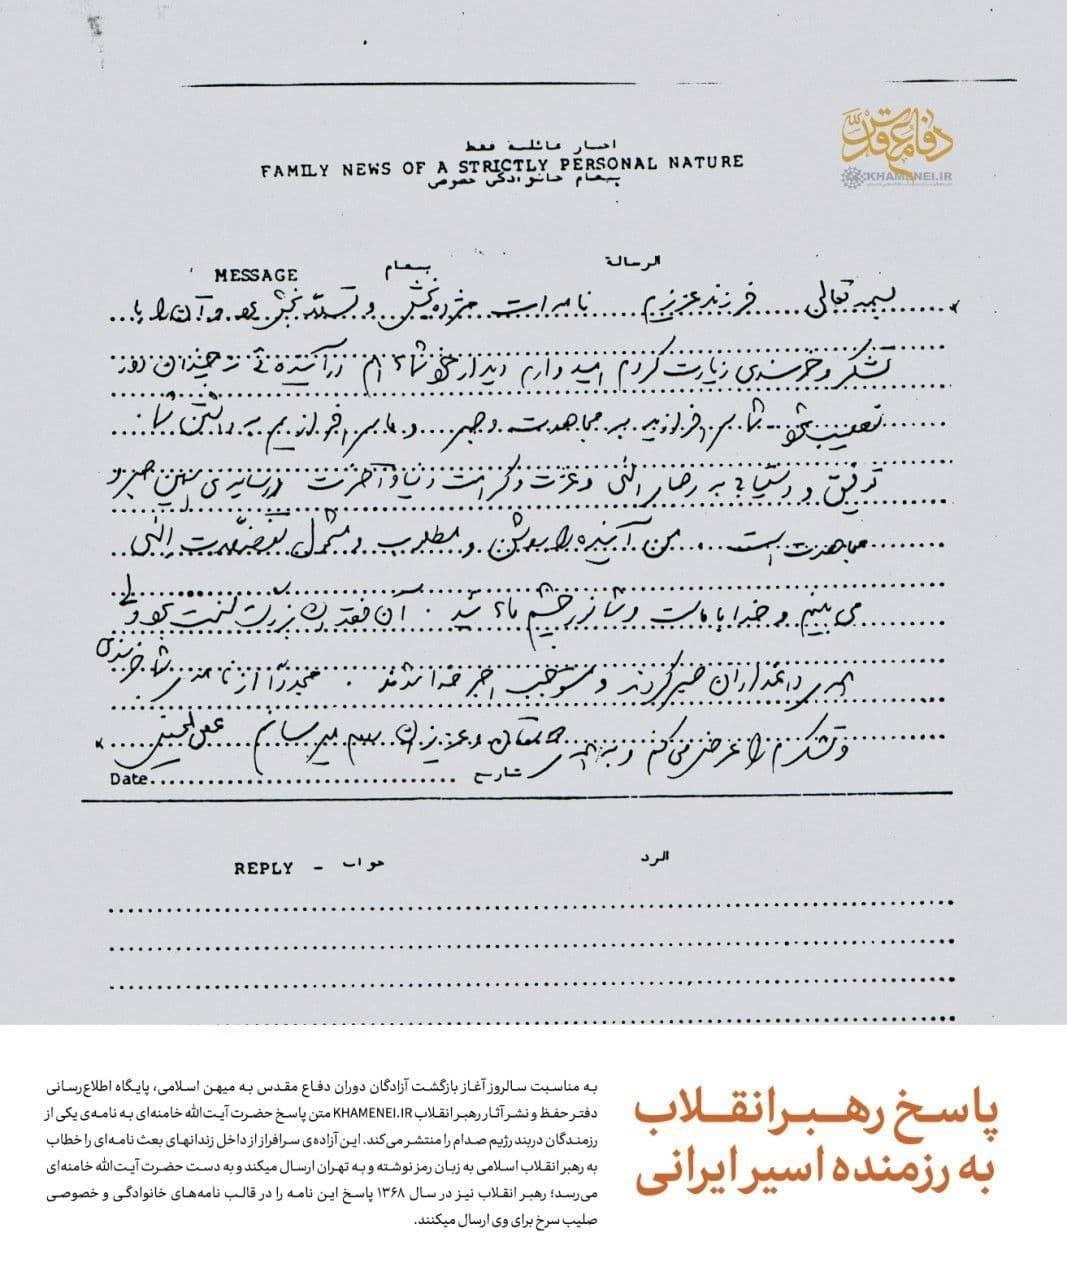 دفاع مقدس
KHAMENEI.IR
اخبار عائلية فقط
FAMILY NEWS OF A STRICTLY PERSONAL NATURE
پیغام خانوادگی خصوصی
MESSAGE پیغام الرسالة
بسمه تعالی فرزند عزیزم نامه‌ات مژده‌بخش و تسلا بخش بود و آن را با
تشکر و خرسندی زیارت کردم امیدوارم دیدار خود شما هم در آینده‌ئی نه چندان دور
نصیب شود شما سرافرازید به مجاهدت و صبر و ما سرافرازیم به داشتن شما
توفیق و دستیابی به رضای الهی و عزت و کرامت دنیا و آخرت در سایه‌ی همین صبر و
مجاهدت است من آینده را روشن و مطلوب و مشمول تفضلات الهی
می بینم و خدا با ماست و شما نور چشم مائید. آن فقدان بزرگ سخت بود ولی
همه‌ی داغداران صبر کردند و مستوجب اجر خدا شدند. مجدداً از نامه‌ی شما خرسندی
و تشکرم را عرض می‌کنم و به همه‌ی دوستان و عزیزان سلام میرسانم
Date تاريخ
REPLY - جواب الرد
پاسخ رهبر انقلاب
به رزمنده اسیر ایرانی
به مناسبت سالروز آغاز بازگشت آزادگان دوران دفاع مقدس به میهن اسلامی، پایگاه اطلاع‌رسانی
دفتر حفظ و نشر آثار رهبر انقلاب KHAMENEI.IR متن پاسخ حضرت آیت‌الله خامنه‌ای به نامه‌ی یکی از
رزمندگان دربند رژیم صدام را منتشر می‌کند. این آزاده‌ی سرافراز از داخل زندانهای بعث نامه‌ای را خطاب
به رهبر انقلاب اسلامی به زبان رمز نوشته و به تهران ارسال میکند و به دست حضرت آیت‌الله خامنه‌ای
می‌رسد؛ رهبر انقلاب نیز در سال ۱۳۶۸ پاسخ این نامه را در قالب نامه‌های خانوادگی و خصوصی
صلیب سرخ برای وی ارسال میکنند.